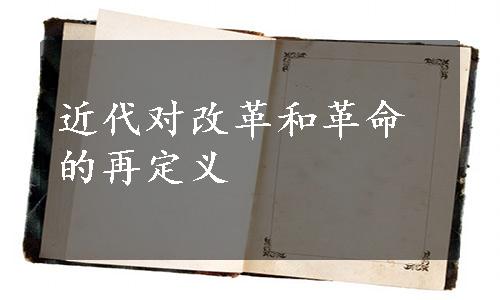 近代对改革和革命
的再定义